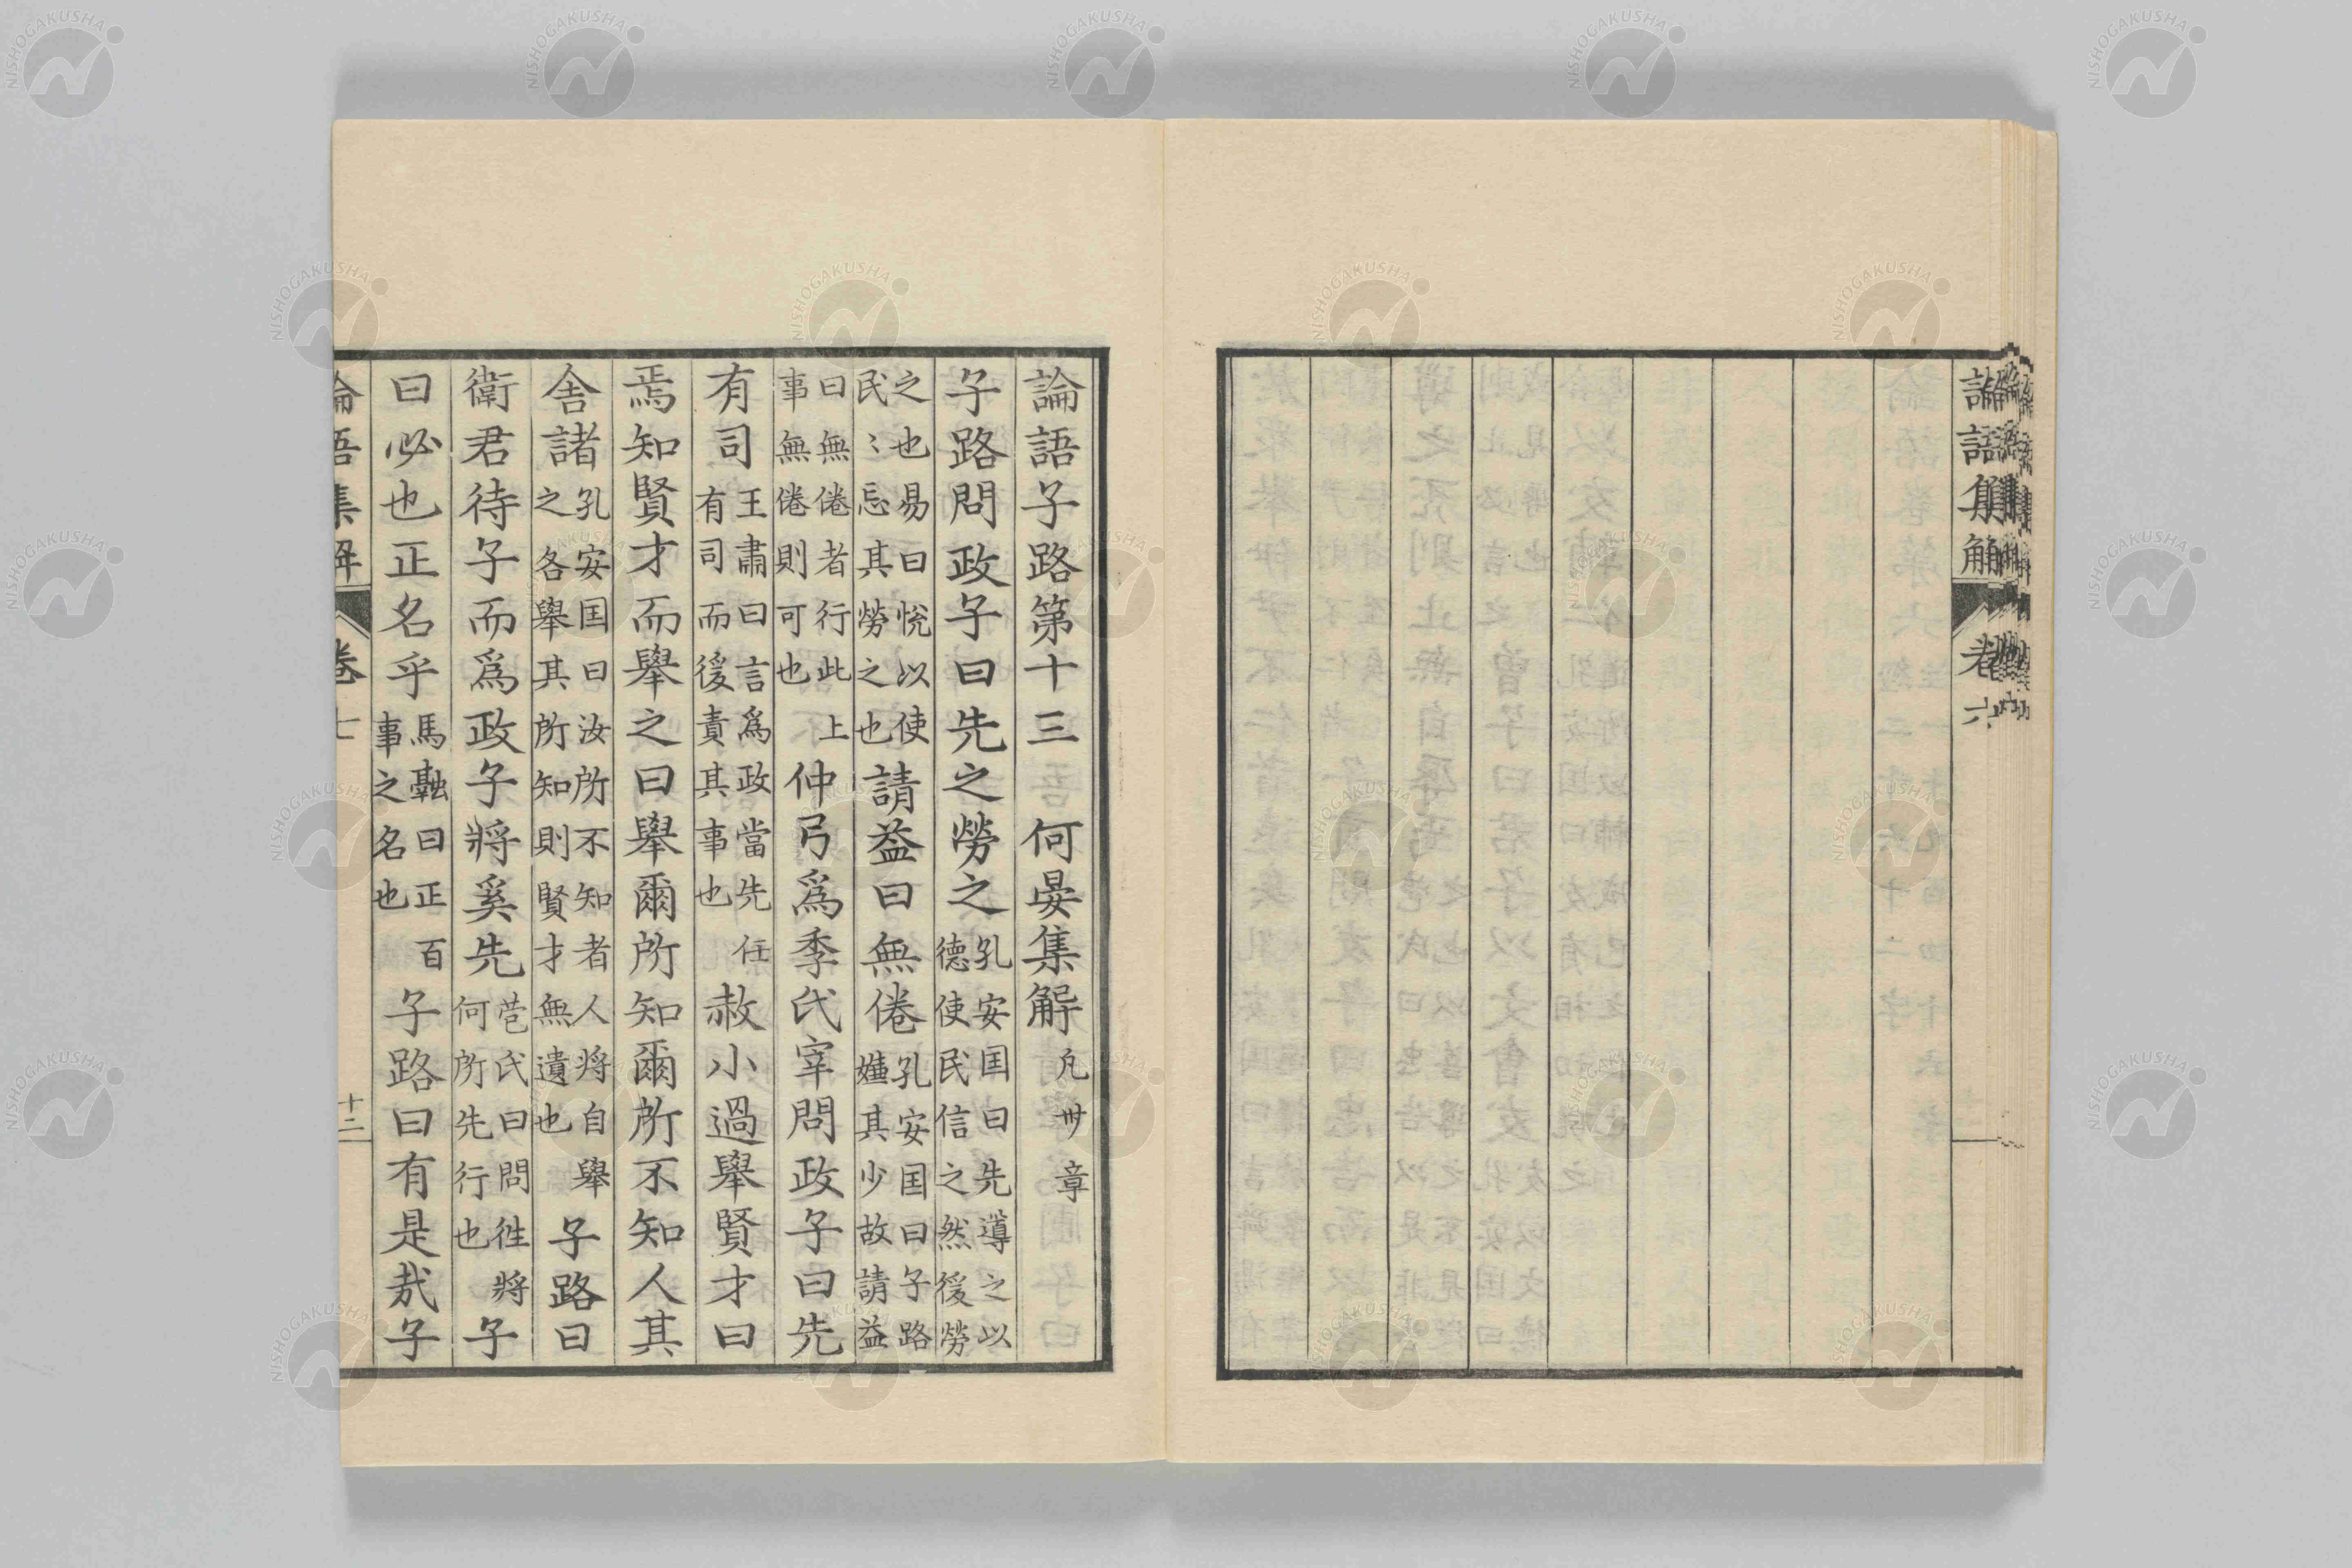 論語集解 卷六
論語子路第十三 何晏集解 凡卅章
子路問政子曰先之勞之 孔安国曰先導之以德使民信之然後勞
之也易曰悅以使民〻忘其勞之也 請益曰無倦 孔安国曰子路嫌其少故請益
曰無倦者行此上事無倦則可也 仲弓爲季氏宰問政子曰先
有司 王肅曰言爲政當先任有司而後責其事也 赦小過舉賢才曰
焉知賢才而舉之曰舉爾所知爾所不知人其
舍諸 孔安国曰汝所不知者人将自舉之各舉其所知則賢才無遺也 子路曰
衛君待子而爲政子將奚先 苞氏曰問徃將何所先行也 子
曰必也正名乎 馬融曰正百事之名也 子路曰有是哉子
論語集解 卷七 十二
NISHOGAKUSHA